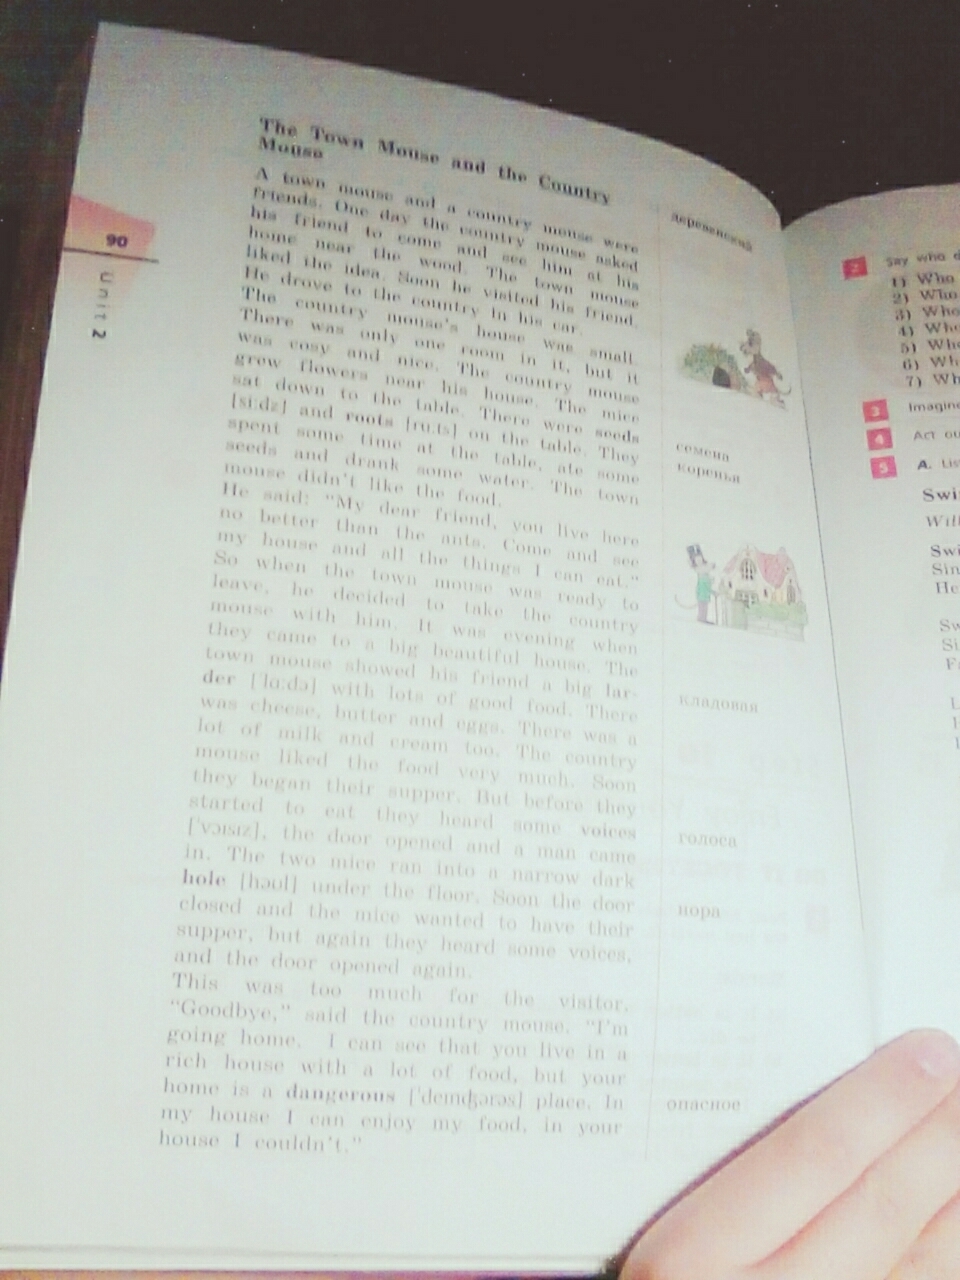 The Town Mouse and the Country
Mouse
A town mouse and a country mouse were
friends. One day the country mouse asked
his friend to come and see him at his
home near the wood. The town mouse
liked the idea. Soon he visited his friend.
He drove to the country in his car.
The country mouse's house was small.
There was only one room in it, but it
was cosy and nice. The country mouse
grew flowers near his house. The mice
sat down to the table. There were seeds
[siːdz] and roots [ruːts] on the table. They
spent some time at the table, ate some
seeds and drank some water. The town
mouse didn't like the food.
He said: “My dear friend, you live here
no better than the ants. Come and see
my house and all the things I can eat.”
So when the town mouse was ready to
leave, he decided to take the country
mouse with him. It was evening when
they came to a big beautiful house. The
town mouse showed his friend a big lar-
der [ˈlɑːdə] with lots of good food. There
was cheese, butter and eggs. There was a
lot of milk and cream too. The country
mouse liked the food very much. Soon
they began their supper. But before they
started to eat they heard some voices
[ˈvɔɪsɪz], the door opened and a man came
in. The two mice ran into a narrow dark
hole [həʊl] under the floor. Soon the door
closed and the mice wanted to have their
supper, but again they heard some voices,
and the door opened again.
This was too much for the visitor.
“Goodbye,” said the country mouse. “I'm
going home. I can see that you live in a
rich house with a lot of food, but your
home is a dangerous [ˈdeɪndʒərəs] place. In
my house I can enjoy my food, in your
house I couldn't.”
деревенский
семена
коренья
кладовая
голоса
нора
опасное
90
Unit 2
2 Say who d
1) Who
2) Who
3) Who
4) Who
5) Who
6) Wh
7) Wh
3 Imagine
4 Act ou
5 A. Lis
Swi
Will
Swi
Sin
He
Sw
Si